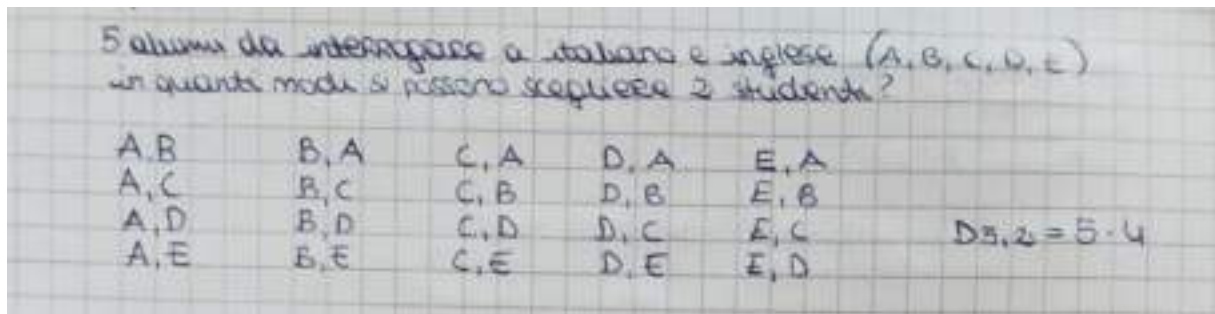 5 alunni da interrogare a italiano e inglese (A, B, C, D, E)
in quanti modi si possono scegliere 2 studenti?
A.B B, A C, A D, A E, A
A, C B, C C, B D, B E, B
A, D B, D C, D D, C E, C D5,2 = 5 · 4
A, E B, E C, E D, E E, D